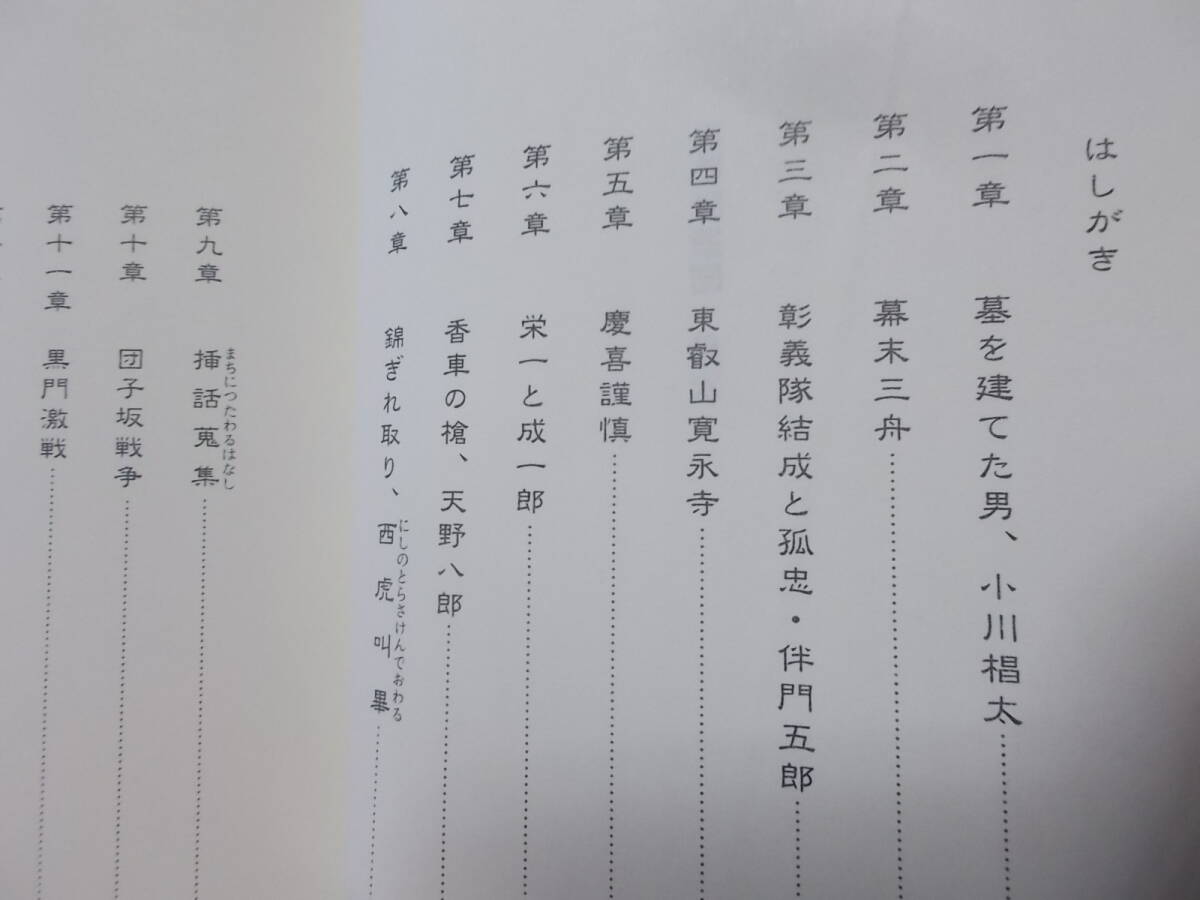 はしがき
第一章 墓を建てた男、小川椙太
第二章 幕末三舟
第三章 彰義隊結成と孤忠・伴門五郎
第四章 東叡山寛永寺
第五章 慶喜謹慎
第六章 栄一と成一郎
第七章 香車の槍、天野八郎
第八章 錦ぎれ取り、西虎叫畢
にしのとらさけんでおわる
第九章 挿話蒐集
まちにつたわるはなし
第十章 団子坂戦争
第十一章 黒門激戦